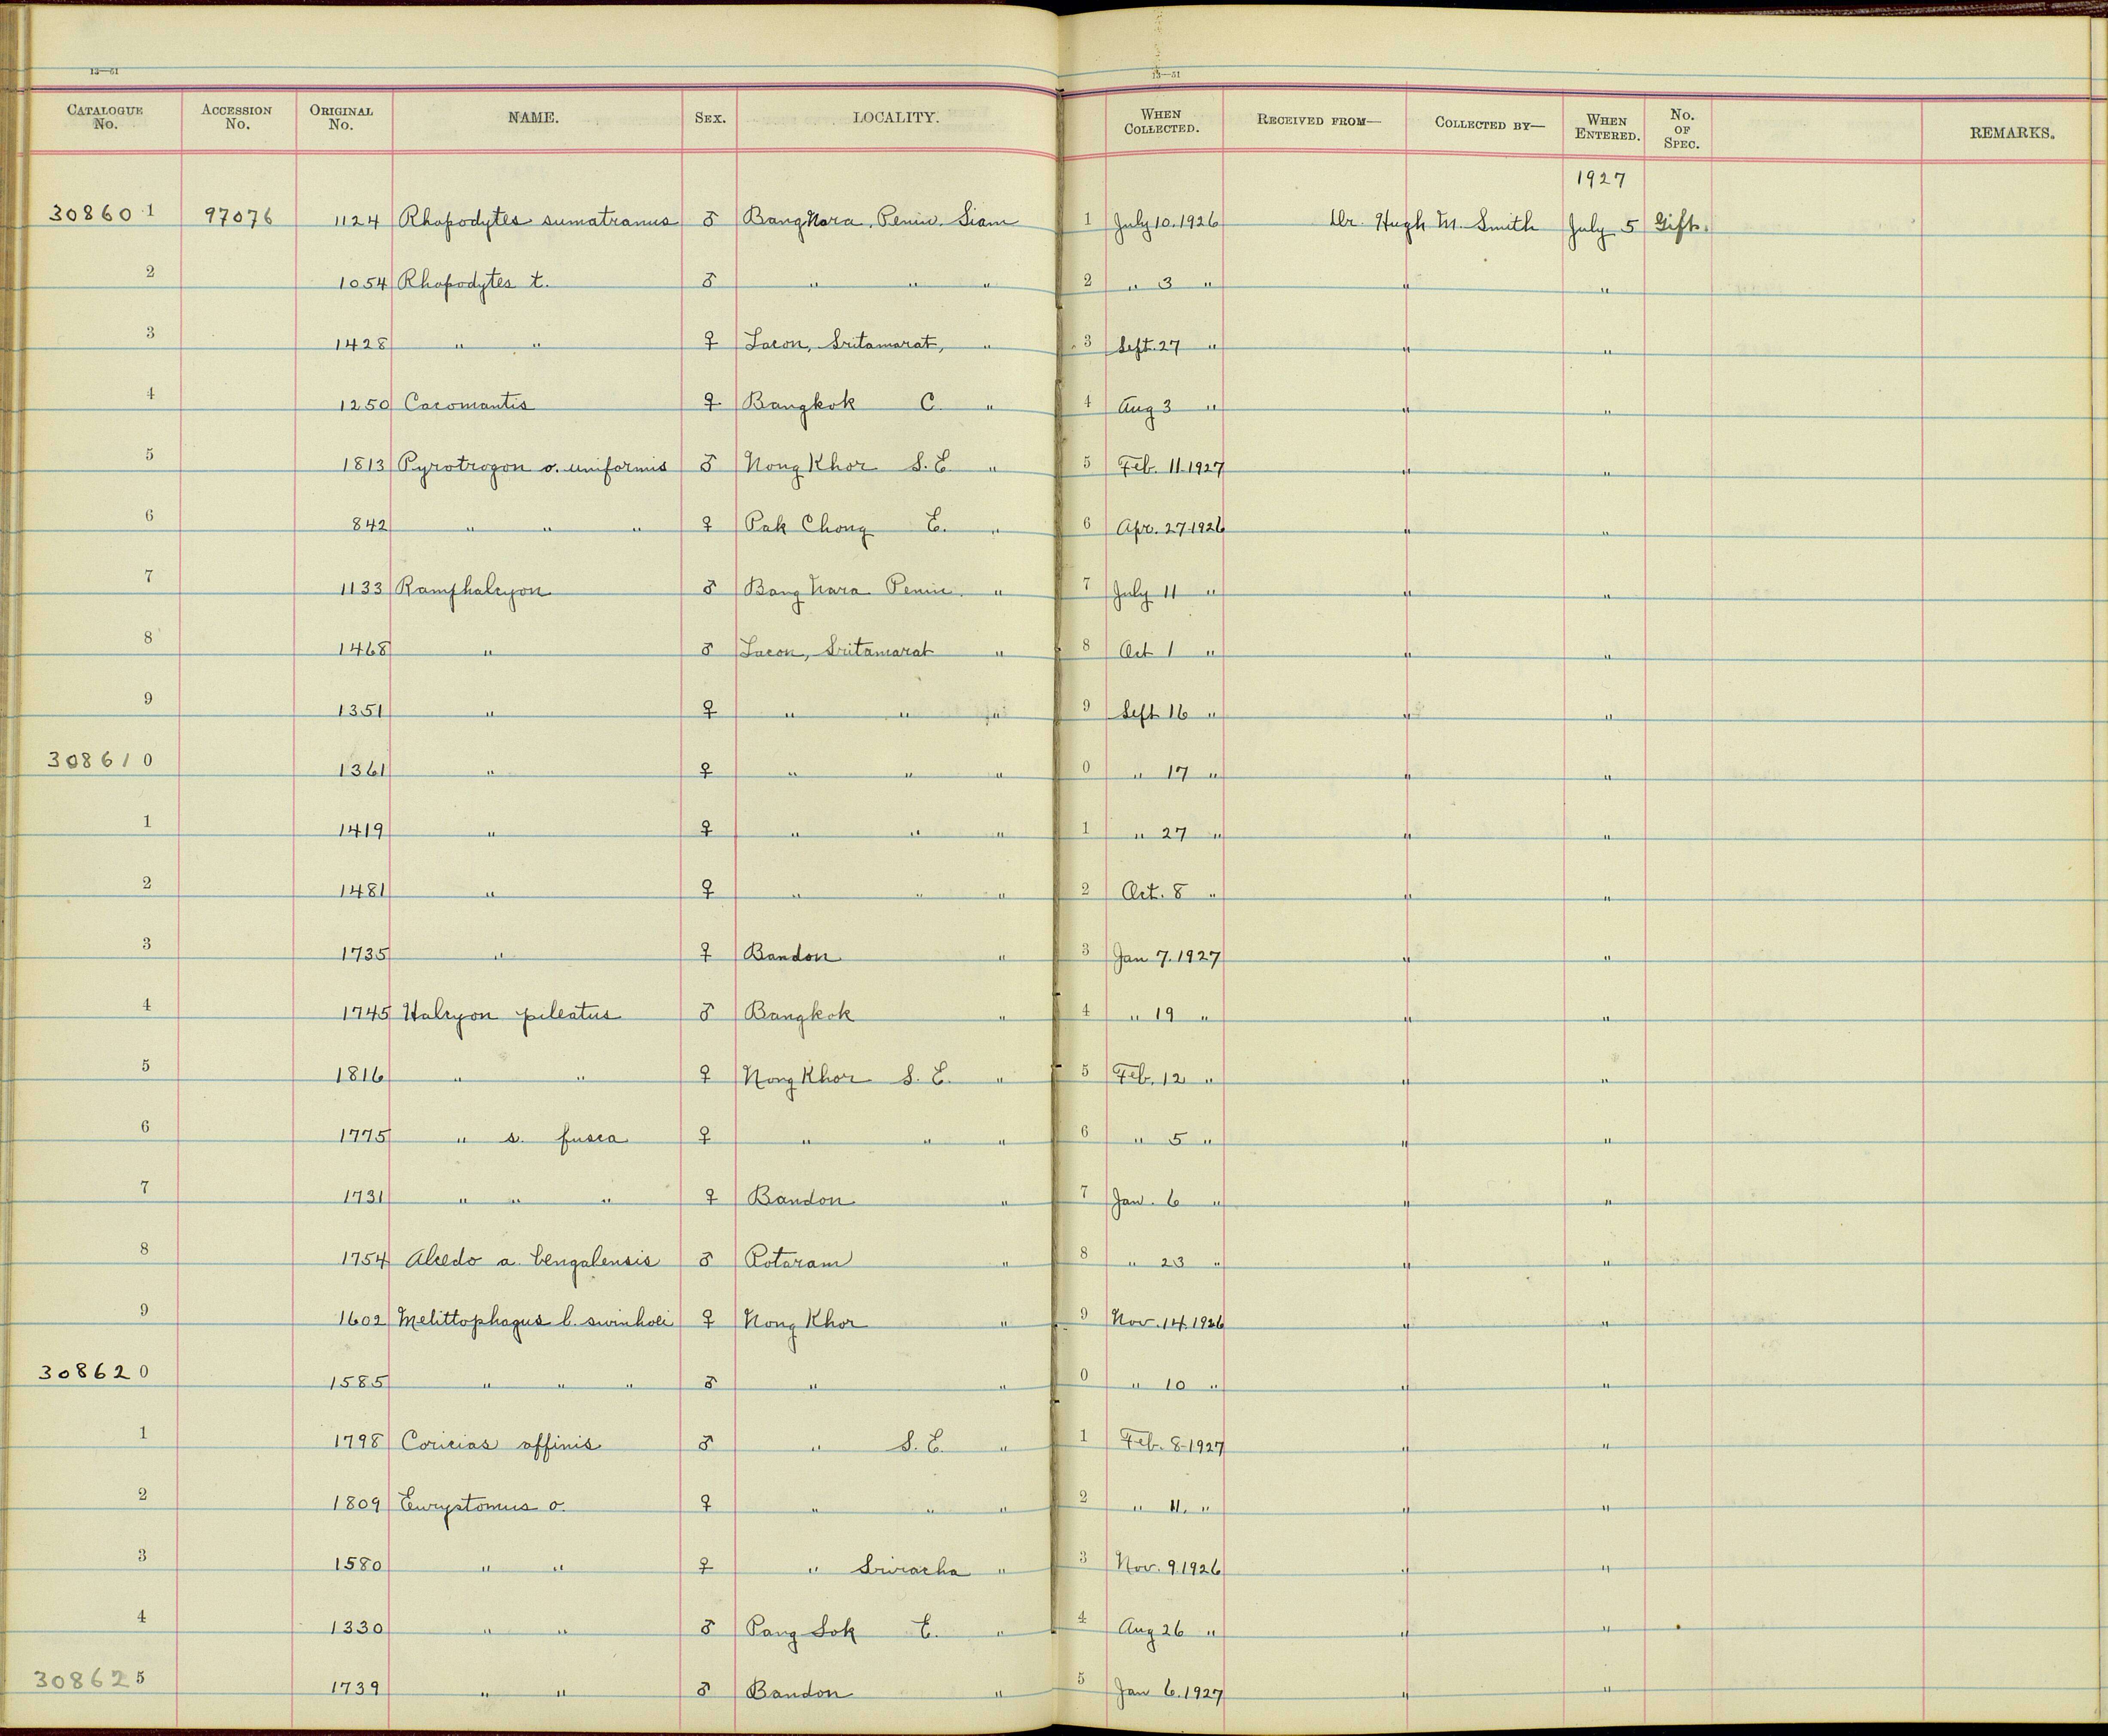 13—51 13—51
CATALOGUE No. ACCESSION No. ORIGINAL No. NAME. SEX. LOCALITY. WHEN COLLECTED. RECEIVED FROM— COLLECTED BY— WHEN ENTERED. No. OF SPEC. REMARKS.
1927
308601 97076 1124 Rhopodytes sumatranus ♂ Bang Nara, Penin. Siam 1 July 10.1926 Dr. Hugh M. Smith July 5 Gift.
2 1054 Rhopodytes t. ♂ " " " 2 " 3 " " "
3 1428 " " ♀ Lacon, Sritamarat, " 3 Sept. 27 " " "
4 1250 Cacomantis ♀ Bangkok C. " 4 Aug 3 " " "
5 1813 Pyrotrogon o. uniformis ♂ Nong Khor S.E. " 5 Feb. 11.1927 " "
6 842 " " " ♀ Pak Chong E. " 6 Apr. 27.1926 " "
7 1133 Ramphalcyon ♂ Bang Nara Penin. " 7 July 11 " " "
8 1468 " ♂ Lacon, Sritamarat " 8 Oct 1 " " "
9 1351 " ♀ " " " 9 Sept 16 " " "
308610 1361 " ♀ " " " 0 " 17 " " "
1 1419 " ♀ " " " 1 " 27 " " "
2 1481 " ♀ " " " 2 Oct. 8 " " "
3 1735 " ♀ Bandon " 3 Jan 7.1927 " "
4 1745 Halcyon pileatus ♂ Bangkok " 4 " 19 " " "
5 1816 " " ♀ Nong Khor S. E. " 5 Feb. 12 " " "
6 1775 " s. fusca ♀ " " " 6 " 5 " " "
7 1731 " " " ♀ Bandon " 7 Jan. 6 " " "
8 1754 Alcedo a. bengalensis ♂ Potaram " 8 " 23 " " "
9 1602 Melittophagus l. swinhoei ♀ Nong Khor " 9 Nov. 14.1926 " "
308620 1585 " " " ♂ " " 0 " 10 " " "
1 1798 Coricias affinis ♂ " S. E. " 1 Feb. 8-1927 " "
2 1809 Eurystomus o. ♀ " " " 2 " 11. " " "
3 1580 " " ♀ " Sriracha " 3 Nov. 9.1926 " "
4 1330 " " ♂ Pang Sok E. " 4 Aug 26 " " "
308625 1739 " " ♂ Bandon " 5 Jan 6.1927 " "